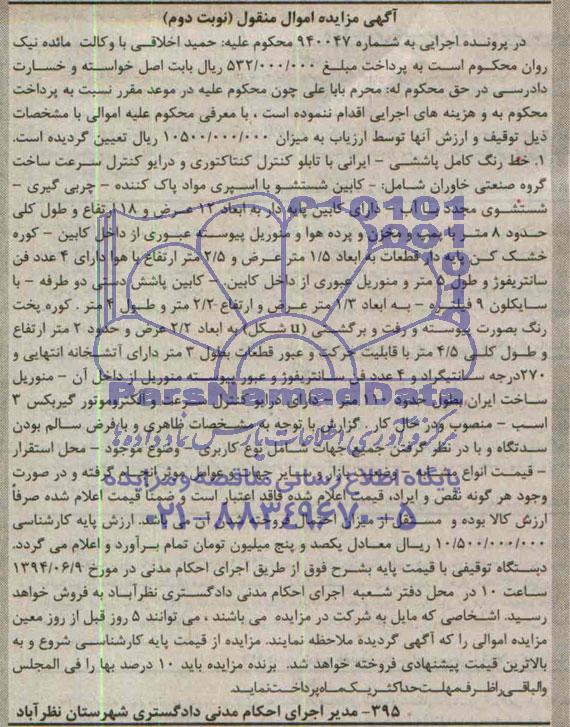 آگهی مزایده اموال منقول (نوبت دوم)
در پرونده اجرایی به شماره ۹۴۰۰۴۷ محکوم علیه: حمید اخلاقی با وکالت مائده نیک
روان محکوم است به پرداخت مبلغ ۵۳۲/۰۰۰/۰۰۰ ریال بابت اصل خواسته و خسارت
دادرسی در حق محکوم له: محرم بابا علی چون محکوم علیه در موعد مقرر نسبت به پرداخت
محکوم به و هزینه های اجرایی اقدام ننموده است ، با معرفی محکوم علیه اموالی با مشخصات
ذیل توقیف و ارزش آنها توسط ارزیاب به میزان ۱۰۵۰۰/۰۰۰/۰۰۰ ریال تعیین گردیده است.
۱. خط رنگ کامل پاششی - ایرانی با تابلو کنترل کنتاکتوری و درایو کنترل سرعت ساخت
گروه صنعتی خاوران شامل: - کابین شستشو با اسپری مواد پاک کننده - چربی گیری -
شستشوی مجدد با آب - دارای کابین پایه دار به ابعاد ۱۲ عرض و ۱۸ ارتفاع و طول کلی
حدود ۸ متر با پمپ و مخزن و پرده هوا و منوریل پیوسته عبوری از داخل کابین - کوره
خشک کن پایه دار قطعات به ابعاد ۱/۵ متر عرض و ۲/۵ متر ارتفاع با هوا دارای ۴ عدد فن
سانتریفوژ و طول ۵ متر و منوریل عبوری از داخل کابین. - کابین پاشش دستی دو طرفه - با
سایکلون ۹ - به ابعاد ۱/۳ متر عرض و ارتفاع ۲/۲۰ متر و طول ۴ متر . کوره پخت
رنگ بصورت پیوسته و رفت و برگشتی (u شکل) به ابعاد ۲/۲ عرض و حدود ۲ متر ارتفاع
و طول کلی ۴/۵ متر با قابلیت حرکت و عبور قطعات بطول ۳ متر دارای آتشخانه انتهایی و
۲۷۰درجه سانتیگراد و ۴ عدد فن سانتریفوژ و عبور پیوسته منوریل از داخل آن - منوریل
ساخت ایران بطول حدود ۱۱۰ متر - دارای درایو کنترل سرعت و الکتروموتور گیربکس ۳
اسب - منصوب و در حال کار. گزارش با توجه به مشخصات ظاهری و با فرض سالم بودن
دستگاه و با در نظر گرفتن جمیع جهات شامل نوع کاربری - وضوع موجود - محل استقرار
- قیمت انواع مشابه - وضعیت بازار و سایر جهات و عوامل موثر انجام گرفته و در صورت
وجود هر گونه نقص و ایراد، قیمت اعلام شده فاقد اعتبار است و ضمنا قیمت اعلام شده صرفاً
ارزش کالا بوده و مستقل از میزان احتمال فروخته شدن آن می باشد. ارزش پایه کارشناسی
۱۰/۵۰۰/۰۰۰/۰۰۰ ریال معادل یکصد و پنج میلیون تومان تمام برآورد و اعلام می گردد.
دستگاه توقیفی با قیمت پایه بشرح فوق از طریق اجرای احکام مدنی در مورخ ۱۳۹۴/۰۶/۹
ساعت ۱۰ در محل دفتر شعبه اجرای احکام مدنی دادگستری نظرآباد به فروش خواهد
رسید. اشخاصی که مایل به شرکت در مزایده می باشند ، می توانند ۵ روز قبل از روز معین
مزایده اموالی را که آگهی گردیده ملاحظه نمایند. مزایده از قیمت پایه کارشناسی شروع و به
بالاترین قیمت پیشنهادی فروخته خواهد شد. برنده مزایده باید ۱۰ درصد بها را فی المجلس
والباقی را ظرف مهلت حداکثر یک ماه پرداخت نماید.
۳۹۵- مدیر اجرای احکام مدنی دادگستری شهرستان نظرآباد
ParsNamadData
مرکز فرآوری اطلاعات پارس نماد داده ها
پایگاه اطلاع رسانی مناقصه و مزایده
۰۲۱-۸۸۳۴۹۶۷۰-۵